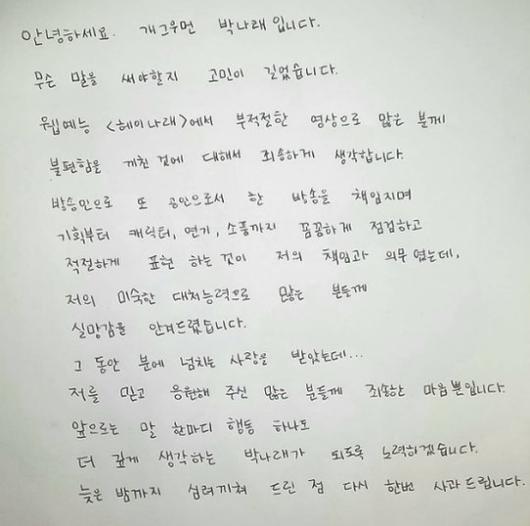 안녕하세요. 개그우먼 박나래 입니다.
무슨 말을 써야할지 고민이 길었습니다.
웹예능 <헤이나래>에서 부적절한 영상으로 많은 분께
불편함을 끼친 것에 대해서 죄송하게 생각합니다.
방송인으로 또 공인으로서 한 방송을 책임지며
기획부터 캐릭터, 연기, 소품까지 꼼꼼하게 점검하고
적절하게 표현 하는것이 저의 책임과 의무였는데,
저의 미숙한 대처능력으로 많은 분들께
실망감을 안겨드렸습니다.
그 동안 분에 넘치는 사랑을 받았는데...
저를 믿고 응원해 주신 많은 분들께 죄송한 마음뿐입니다.
앞으로는 말 한마디 행동 하나도
더 깊게 생각하는 박나래가 되도록 노력하겠습니다.
늦은 밤까지 심려끼쳐 드린 점 다시 한번 사과드립니다.